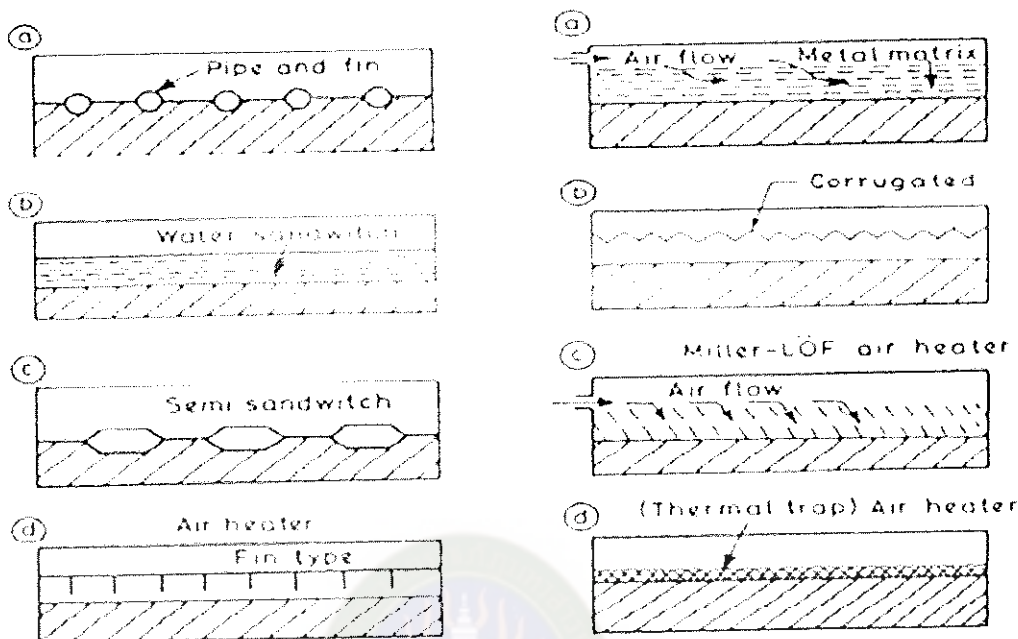 a
Pipe and fin
b
Water sandwitch
c
Semi sandwitch
d
Air heater
Fin type
a
Air flow
Metal matrix
b
Corrugated
c
Miller-LÖF air heater
Air flow
d
(Thermal trap) Air heater